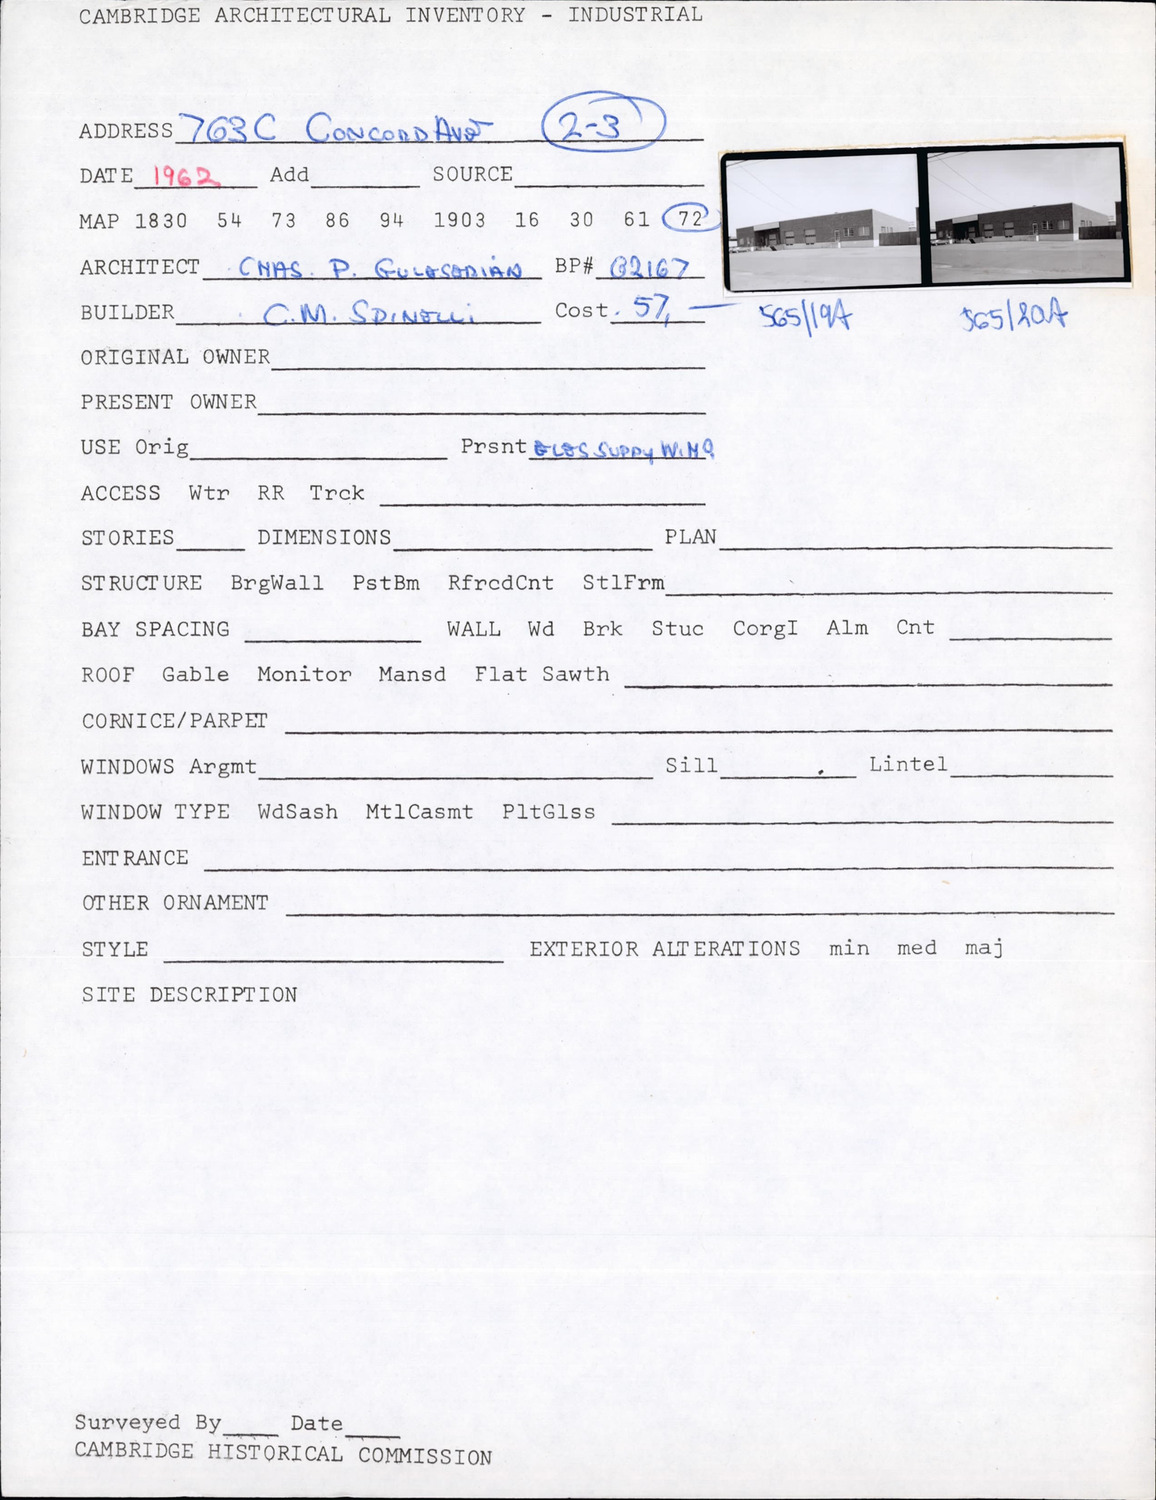 CAMBRIDGE ARCHITECTURAL INVENTORY - INDUSTRIAL
ADDRESS 763C CONCORD AVE 2-3
DATE 1962 Add SOURCE
MAP 1830 54 73 86 94 1903 16 30 61 72
ARCHITECT CHAS. P. GULESERIAN BP# 62167
BUILDER C.M. SPINELLI Cost. 57, —
565/19A 565/20A
ORIGINAL OWNER
PRESENT OWNER
USE Orig Prsnt ELES SUPPY
ACCESS Wtr RR Trck
STORIES DIMENSIONS PLAN
STRUCTURE BrgWall PstBm RfrcdCnt StlFrm
BAY SPACING WALL Wd Brk Stuc CorgI Alm Cnt
ROOF Gable Monitor Mansd Flat Sawth
CORNICE/PARPET
WINDOWS Argmt Sill Lintel
WINDOW TYPE WdSash MtlCasmt PltGlss
ENTRANCE
OTHER ORNAMENT
STYLE EXTERIOR ALTERATIONS min med maj
SITE DESCRIPTION
Surveyed By Date
CAMBRIDGE HISTORICAL COMMISSION